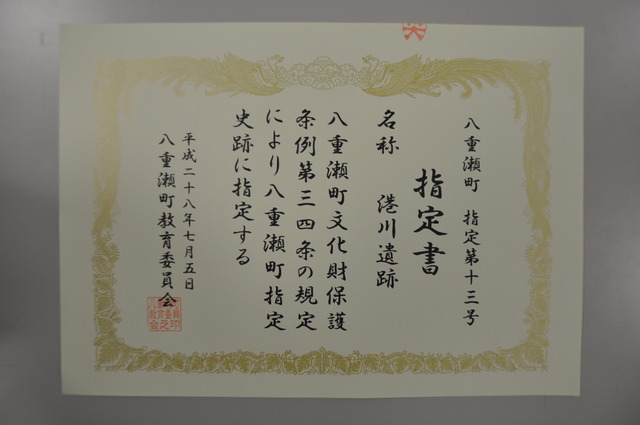 八重瀬町　指定第十三号
指定書
名称　港川遺跡
八重瀬町文化財保護
条例第三四条の規定
により八重瀬町指定
史跡に指定する
平成二十八年七月五日
八重瀬町教育委員会